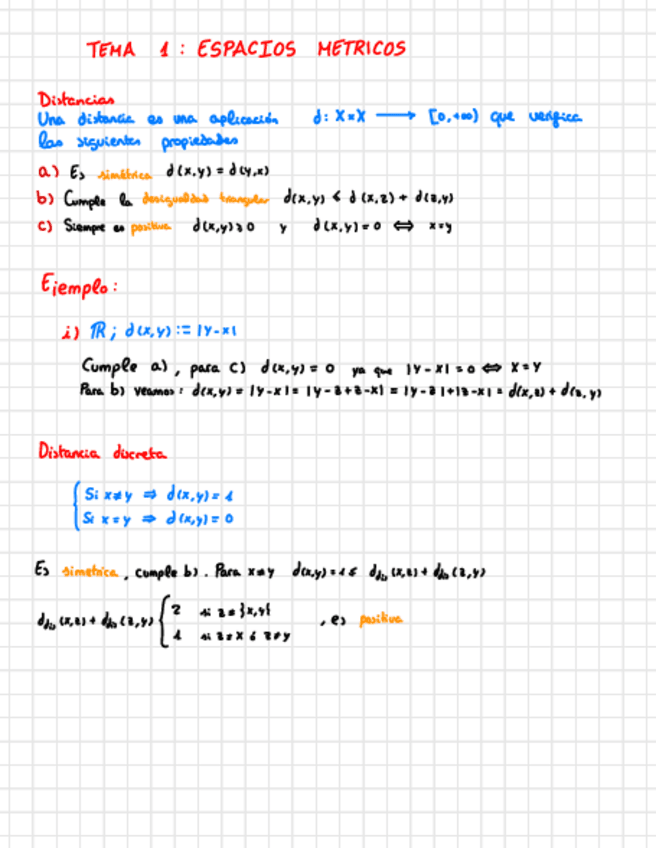 TEMA 1 : ESPACIOS METRICOS
Distancias
Una distancia es una aplicación d: X×X ⟶ [0,+∞) que verifica
las siguientes propiedades
a) Es simétrica d(x,y) = d(y,x)
b) Cumple la desigualdad triangular d(x,y) ≤ d(x,z) + d(z,y)
c) Siempre es positiva d(x,y) ≥ 0 y d(x,y) = 0 ⇔ x=y
Ejemplo:
i) ℝ ; d(x,y) := |y-x|
Cumple a) , para c) d(x,y) = 0 ya que |y-x| = 0 ⇔ x=y
Para b) veamos : d(x,y) = |y-x| = |y-z+z-x| = |y-z|+|z-x| = d(x,z) + d(z,y)
Distancia discreta
Si x≠y ⇒ d(x,y) = 1
Si x=y ⇒ d(x,y) = 0
Es simetrica , cumple b) . Para x≠y d(x,y) = 1 ≤ d_dis (x,z) + d_dis (z,y)
d_dis (x,z) + d_dis (z,y) { 2 si z ≠ {x,y}
1 si z=x ó z≠y , es positiva